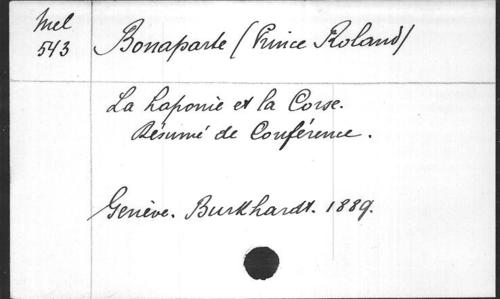 Mel
543
Bonaparte (Prince Roland)
La Laponie et la Corse.
Résumé de Conférence.
Genève. Burkhardt. 1889.